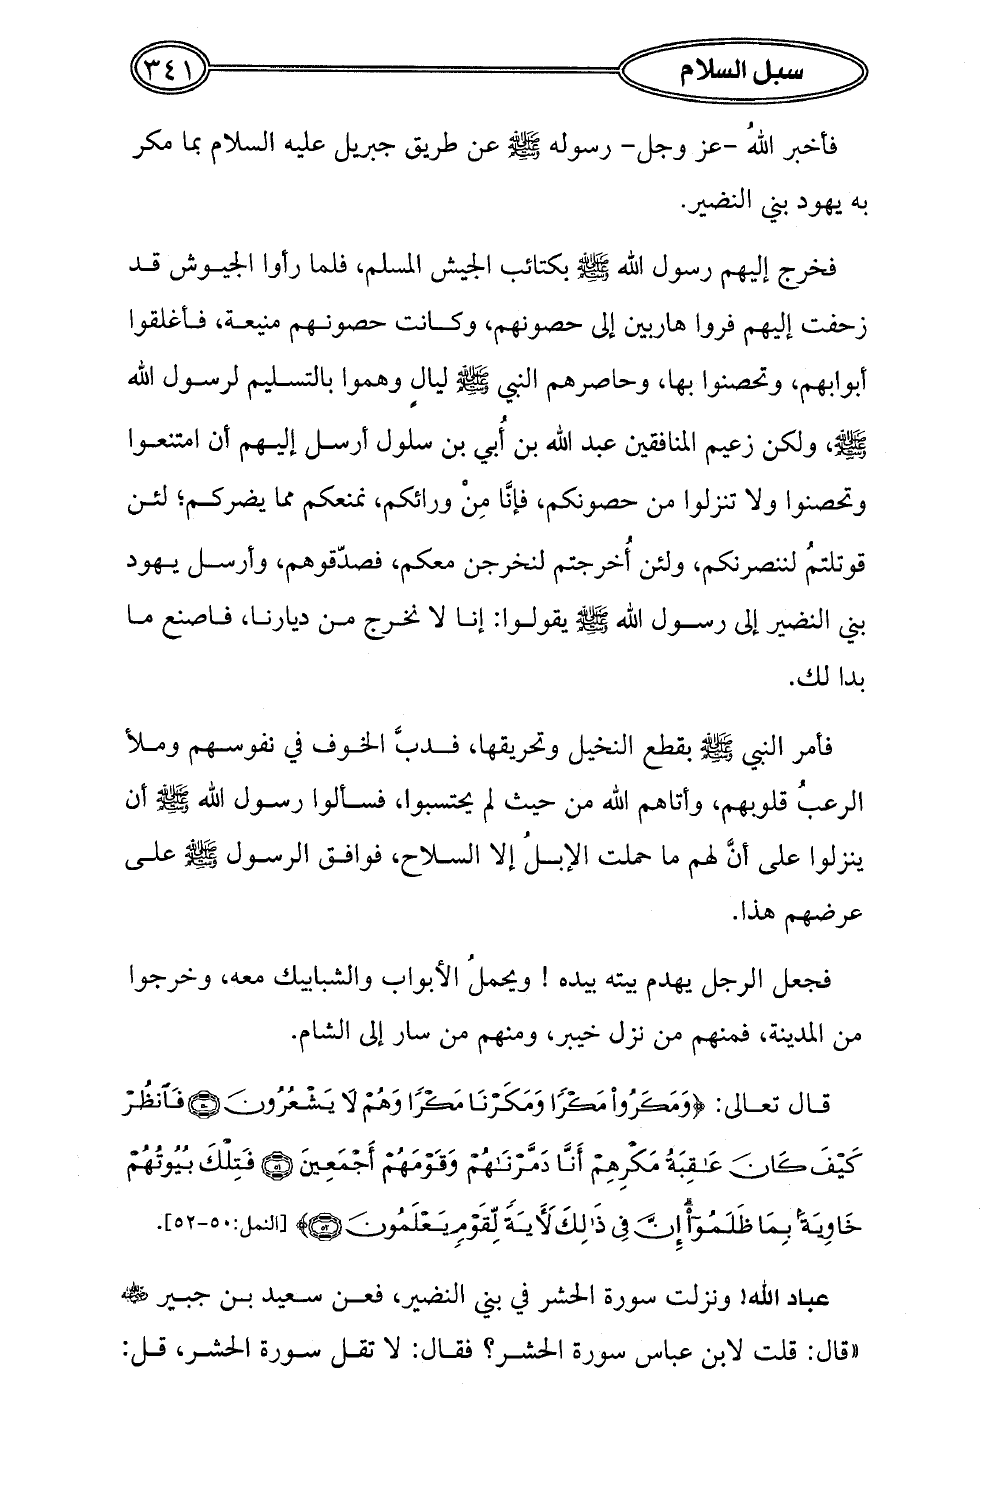 سبل السلام ٣٤١
فأخبر اللهُ -عز وجل- رسوله ﷺ عن طريق جبريل عليه السلام بما مكر
به يهود بني النضير.
فخرج إليهم رسول الله ﷺ بكتائب الجيش المسلم، فلما رأوا الجيوش قد
زحفت إليهم فروا هاربين إلى حصونهم، وكانت حصونهم منيعة، فأغلقوا
أبوابهم، وتحصنوا بها، وحاصرهم النبي ﷺ ليالٍ وهموا بالتسليم لرسول الله
ﷺ، ولكن زعيم المنافقين عبد الله بن أُبي بن سلول أرسل إليهم أن امتنعوا
وتحصنوا ولا تنزلوا من حصونكم، فإنَّا مِنْ ورائكم، نمنعكم مما يضركم؛ لئن
قوتلتمُ لننصرنكم، ولئن أُخرجتم لنخرجن معكم، فصدّقوهم، وأرسل يهود
بني النضير إلى رسول الله ﷺ يقولوا: إنا لا نخرج من ديارنا، فاصنع ما
بدا لك.
فأمر النبي ﷺ بقطع النخيل وتحريقها، فدبَّ الخوف في نفوسهم وملأ
الرعبُ قلوبهم، وأتاهم الله من حيث لم يحتسبوا، فسألوا رسول الله ﷺ أن
ينزلوا على أنَّ لهم ما حملت الإبلُ إلا السلاح، فوافق الرسول ﷺ على
عرضهم هذا.
فجعل الرجل يهدم بيته بيده ! ويحملُ الأبواب والشبابيك معه، وخرجوا
من المدينة، فمنهم من نزل خيبر، ومنهم من سار إلى الشام.
قال تعالى: ﴿وَمَكَرُواْ مَكْرًا وَمَكَرْنَا مَكْرًا وَهُمْ لَا يَشْعُرُونَ ۝٥٠ فَٱنظُرْ
كَيْفَ كَانَ عَٰقِبَةُ مَكْرِهِمْ أَنَّا دَمَّرْنَٰهُمْ وَقَوْمَهُمْ أَجْمَعِينَ ۝٥١ فَتِلْكَ بُيُوتُهُمْ
خَاوِيَةًۢ بِمَا ظَلَمُوٓاْ إِنَّ فِي ذَٰلِكَ لَأَيَةً لِّقَوْمٍ يَعْلَمُونَ ۝٥٢﴾ [النمل: ٥٠-٥٢].
عباد الله! ونزلت سورة الحشر في بني النضير، فعن سعيد بن جبير رضي الله عنه
«قال: قلت لابن عباس سورة الحشر؟ فقال: لا تقل سورة الحشر، قل: